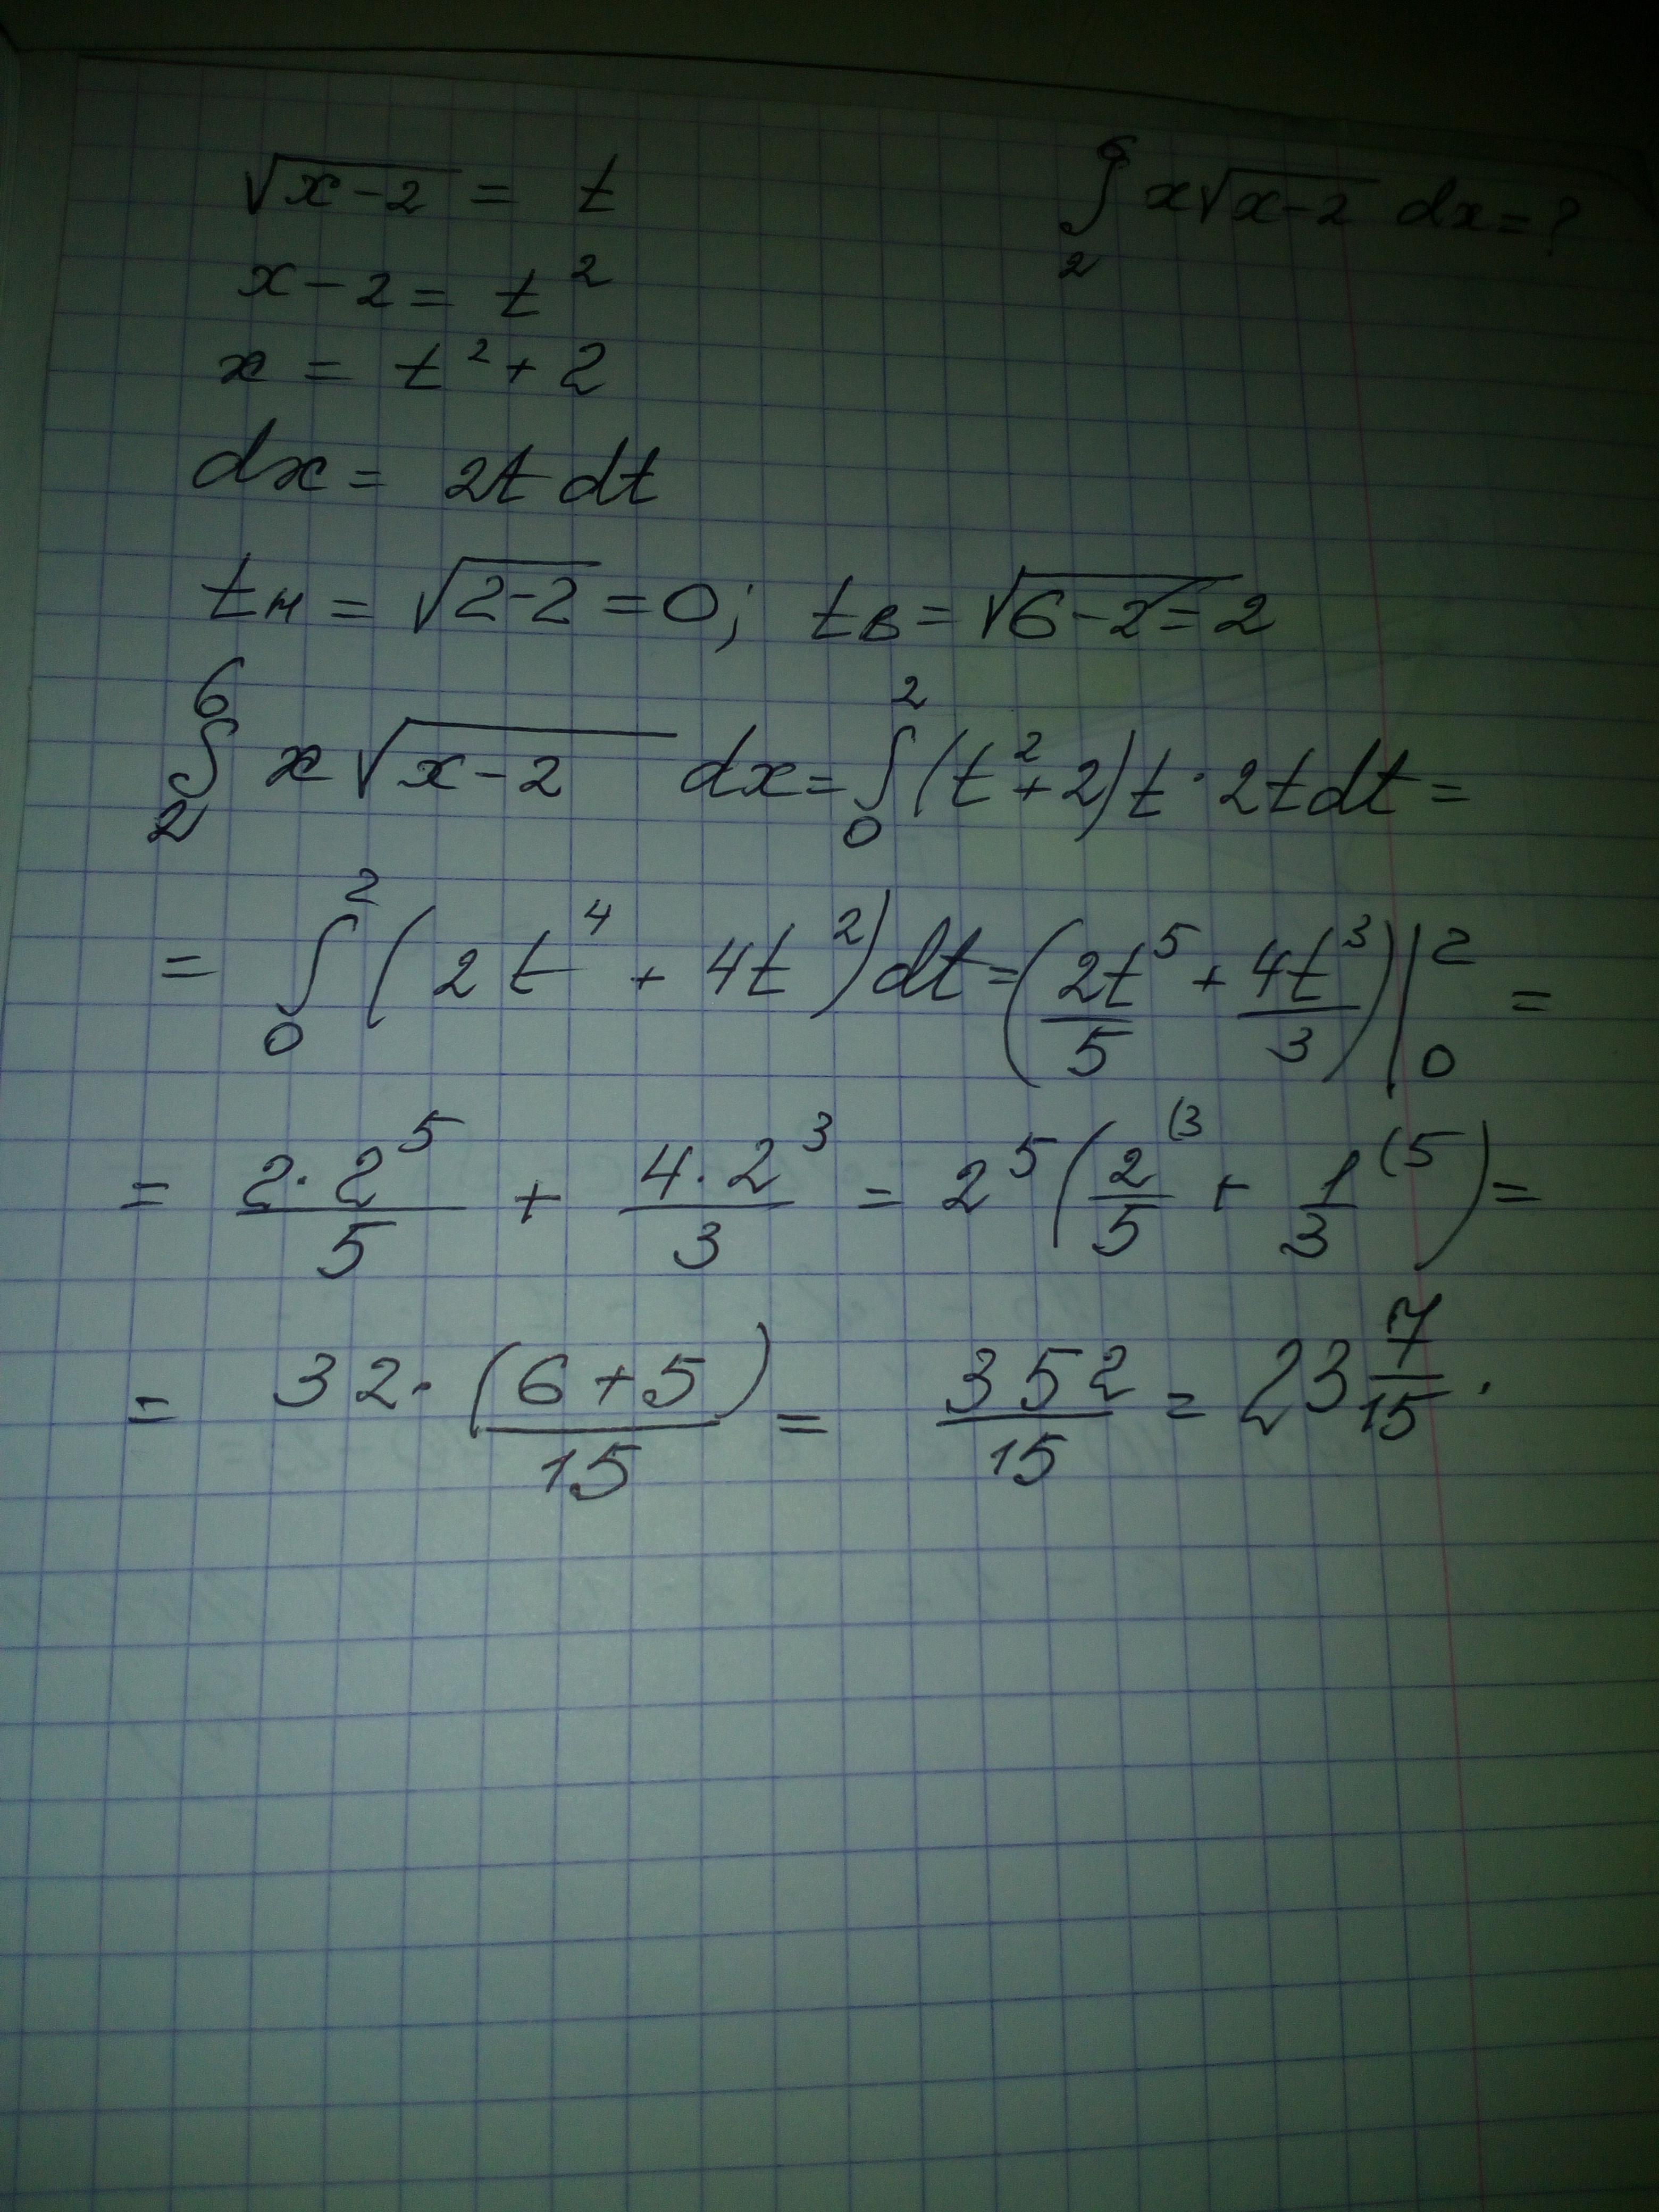 √(x-2) = t
∫₂⁶ x√(x-2) dx = ?
x - 2 = t²
x = t² + 2
dx = 2t dt
tн = √(2-2) = 0; tв = √(6-2) = 2
∫₂⁶ x√(x-2) dx = ∫₀² (t² + 2)t · 2t dt =
= ∫₀² (2t⁴ + 4t²) dt = (2t⁵/5 + 4t³/3)|₀² =
= 2·2⁵/5 + 4·2³/3 = 2⁵(2/5 ⁽³ + 1/3 ⁽⁵) =
= 32·(6+5)/15 = 352/15 = 23 7/15.